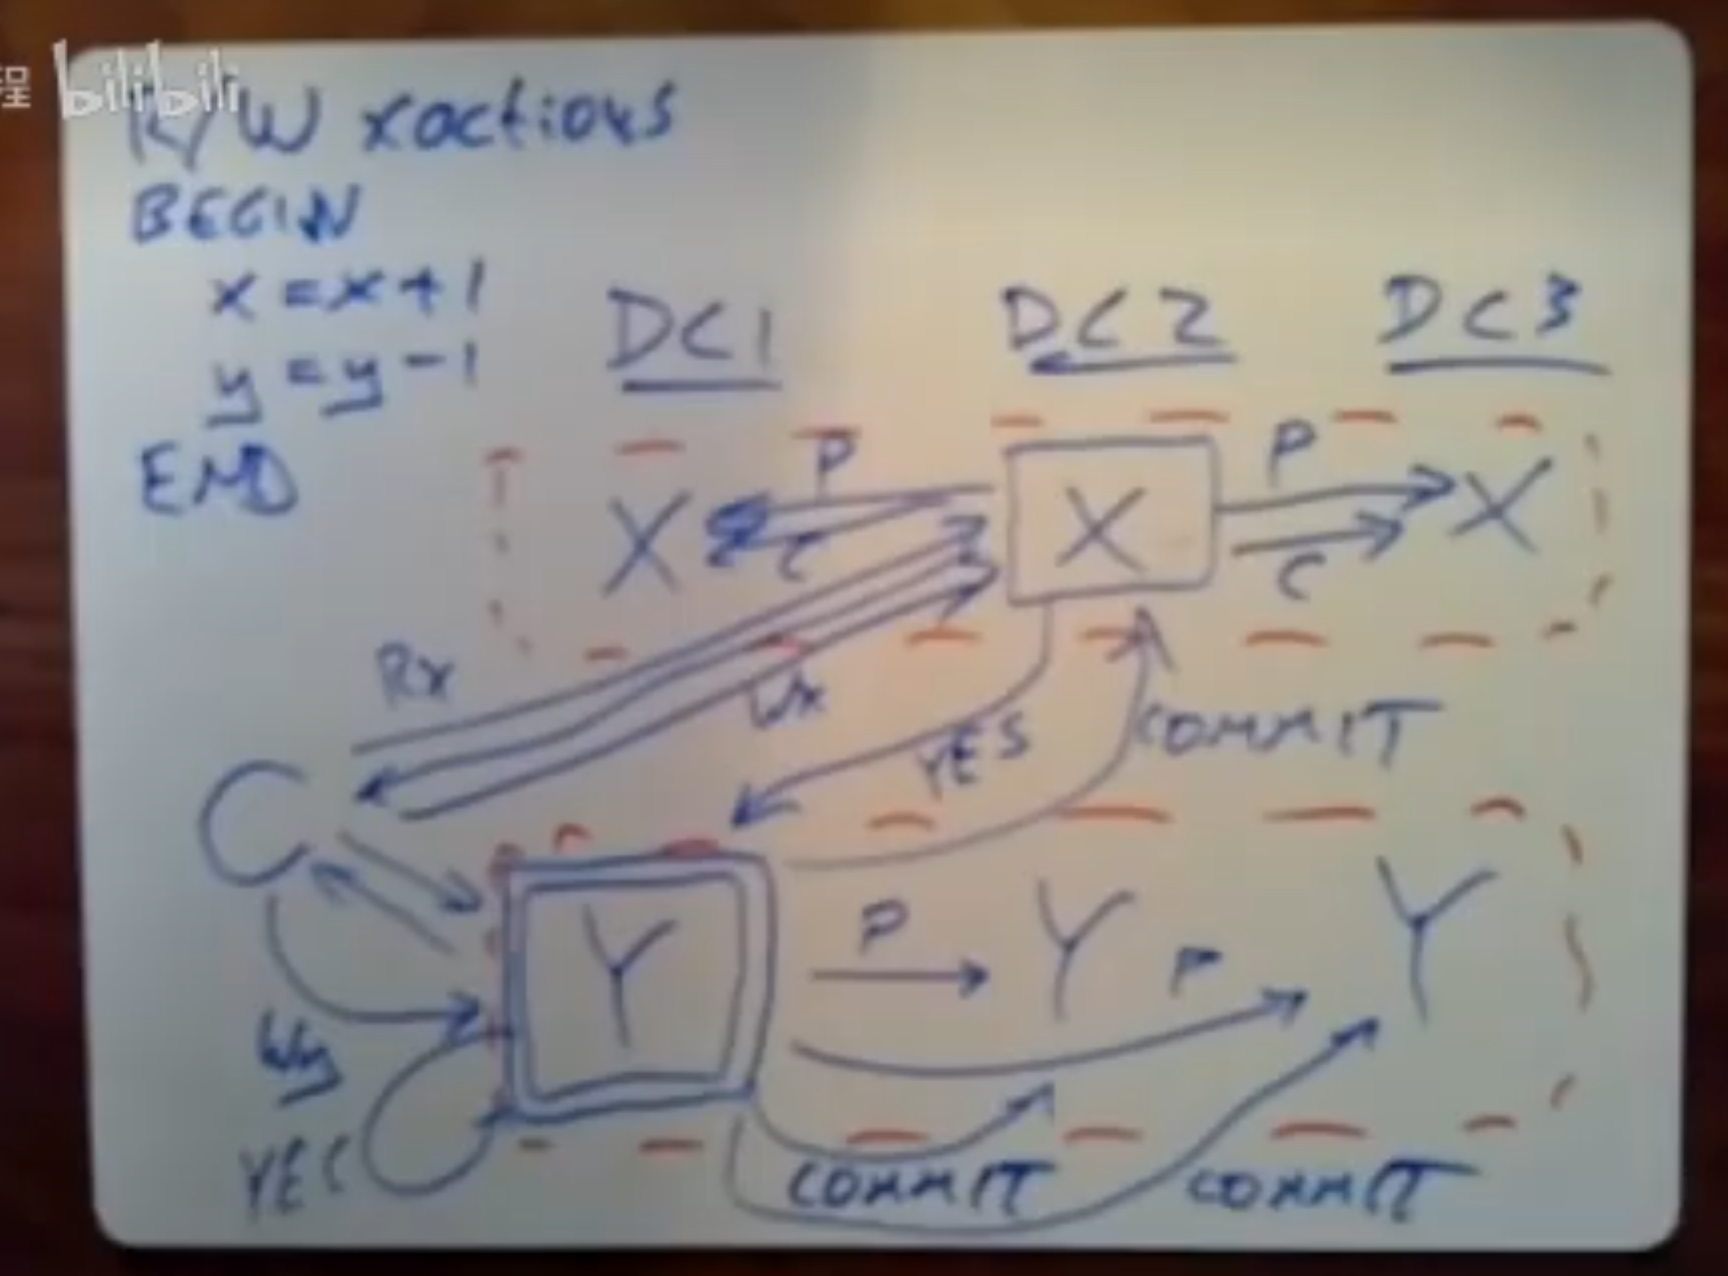 程 bilibili
R/W xactions
BEGIN
x = x + 1
y = y - 1
END
DC1 DC2 DC3
P P
X X X
C C
Rx
Wx
YES
COMMIT
C
Y Y Y
P P
Wy
YES
COMMIT COMMIT